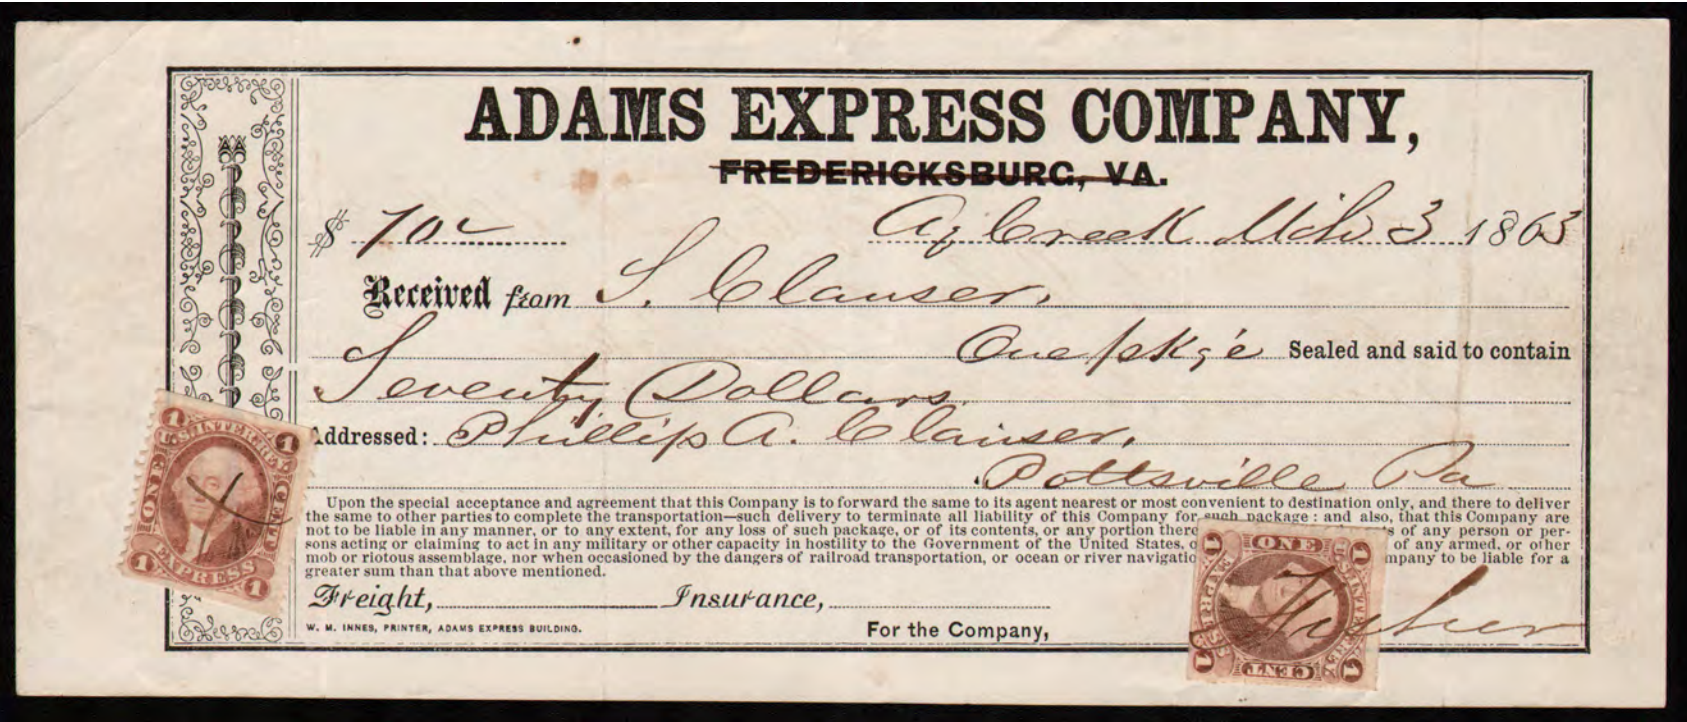 ADAMS EXPRESS COMPANY,
FREDERICKSBURG, VA.
$ 70 Aq Creek Mch 3 1863
Received from S. Clauser.
One pkge Sealed and said to contain
Seventy Dollars.
Addressed: Phillip A. Clauser.
Pottsville Pa
Upon the special acceptance and agreement that this Company is to forward the same to its agent nearest or most convenient to destination only, and there to deliver
the same to other parties to complete the transportation—such delivery to terminate all liability of this Company for such package: and also, that this Company are
not to be liable in any manner, or to any extent, for any loss of such package, or of its contents, or any portion there s of any person or per-
sons acting or claiming to act in any military or other capacity in hostility to the Government of the United States, o of any armed, or other
mob or riotous assemblage, nor when occasioned by the dangers of railroad transportation, or ocean or river navigatio mpany to be liable for a
greater sum than that above mentioned.
Freight, Insurance,
W. M. INNES, PRINTER, ADAMS EXPRESS BUILDING.
For the Company,
1 U.S. INTER. REV. 1
ONE CENT
1 EXPRESS 1
1 ONE 1
CENT
1 1